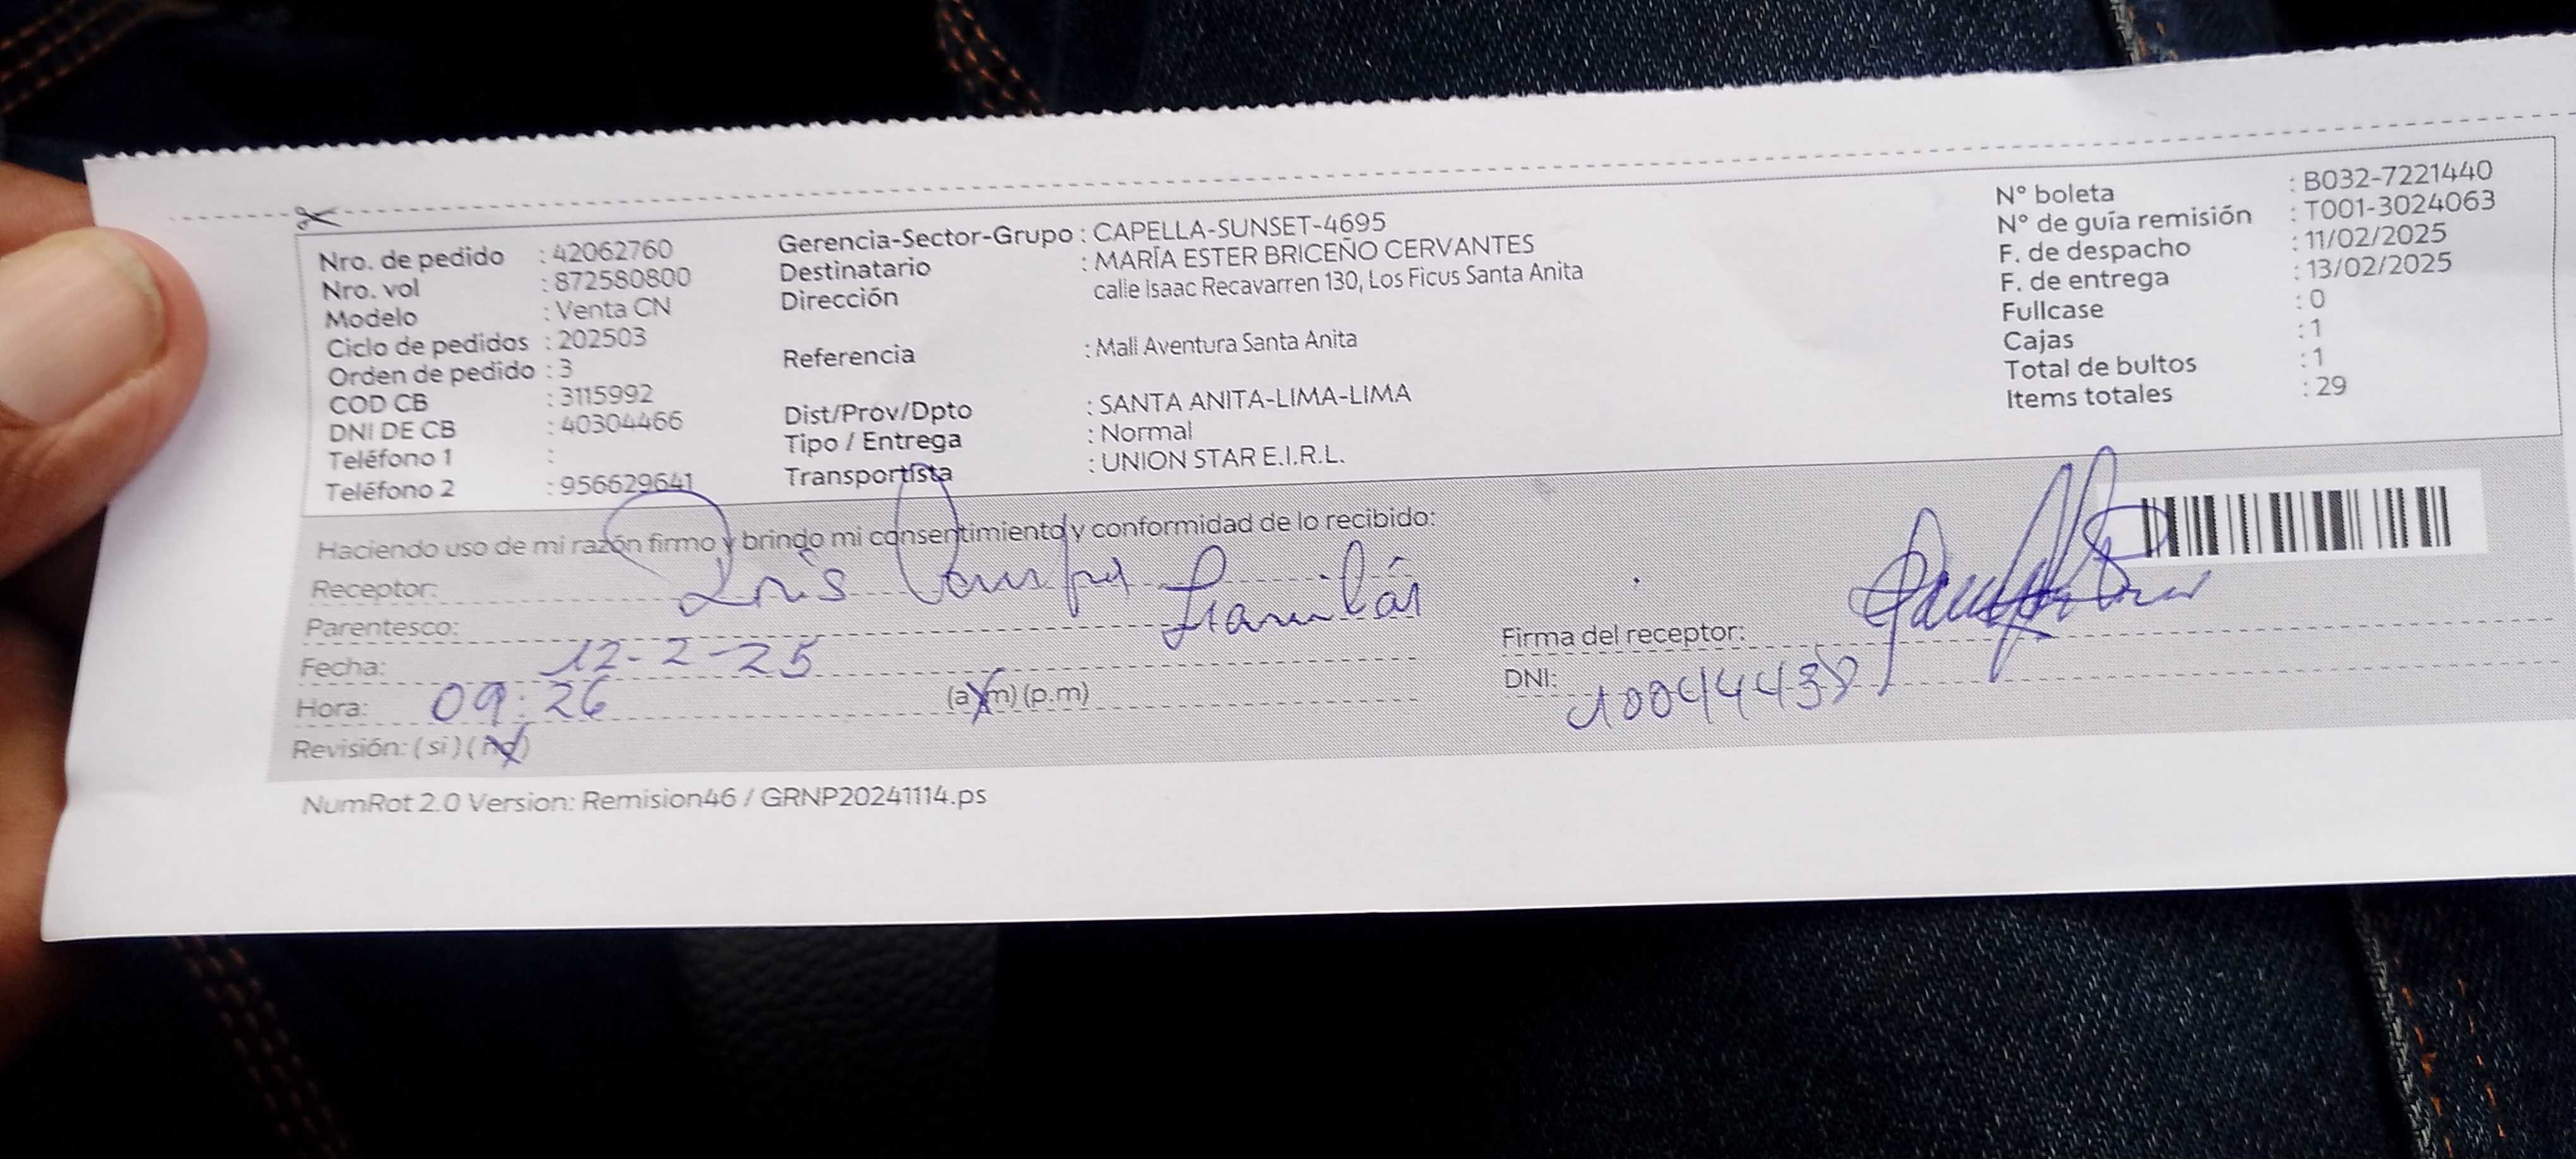 Nro. de pedido : 42062760
Nro. vol : 872580800
Modelo : Venta CN
Ciclo de pedidos : 202503
Orden de pedido : 3
COD CB : 3115992
DNI DE CB : 40304466
Teléfono 1 :
Teléfono 2 : 956629641
Gerencia-Sector-Grupo : CAPELLA-SUNSET-4695
Destinatario : MARÍA ESTER BRICEÑO CERVANTES
Dirección calle Isaac Recavarren 130, Los Ficus Santa Anita
Referencia : Mall Aventura Santa Anita
Dist/Prov/Dpto : SANTA ANITA-LIMA-LIMA
Tipo / Entrega : Normal
Transportista : UNION STAR E.I.R.L.
N° boleta : B032-7221440
N° de guía remisión : T001-3024063
F. de despacho : 11/02/2025
F. de entrega : 13/02/2025
Fullcase : 0
Cajas : 1
Total de bultos : 1
Items totales : 29
Haciendo uso de mi razón firmo y brindo mi consentimiento y conformidad de lo recibido:
Receptor:
Parentesco:
Fecha: 12-2-25
Hora: 09:26 (a.m) (p.m)
Revisión: (si) (no)
Firma del receptor:
DNI:
NumRot 2.0 Version: Remision46 / GRNP20241114.ps